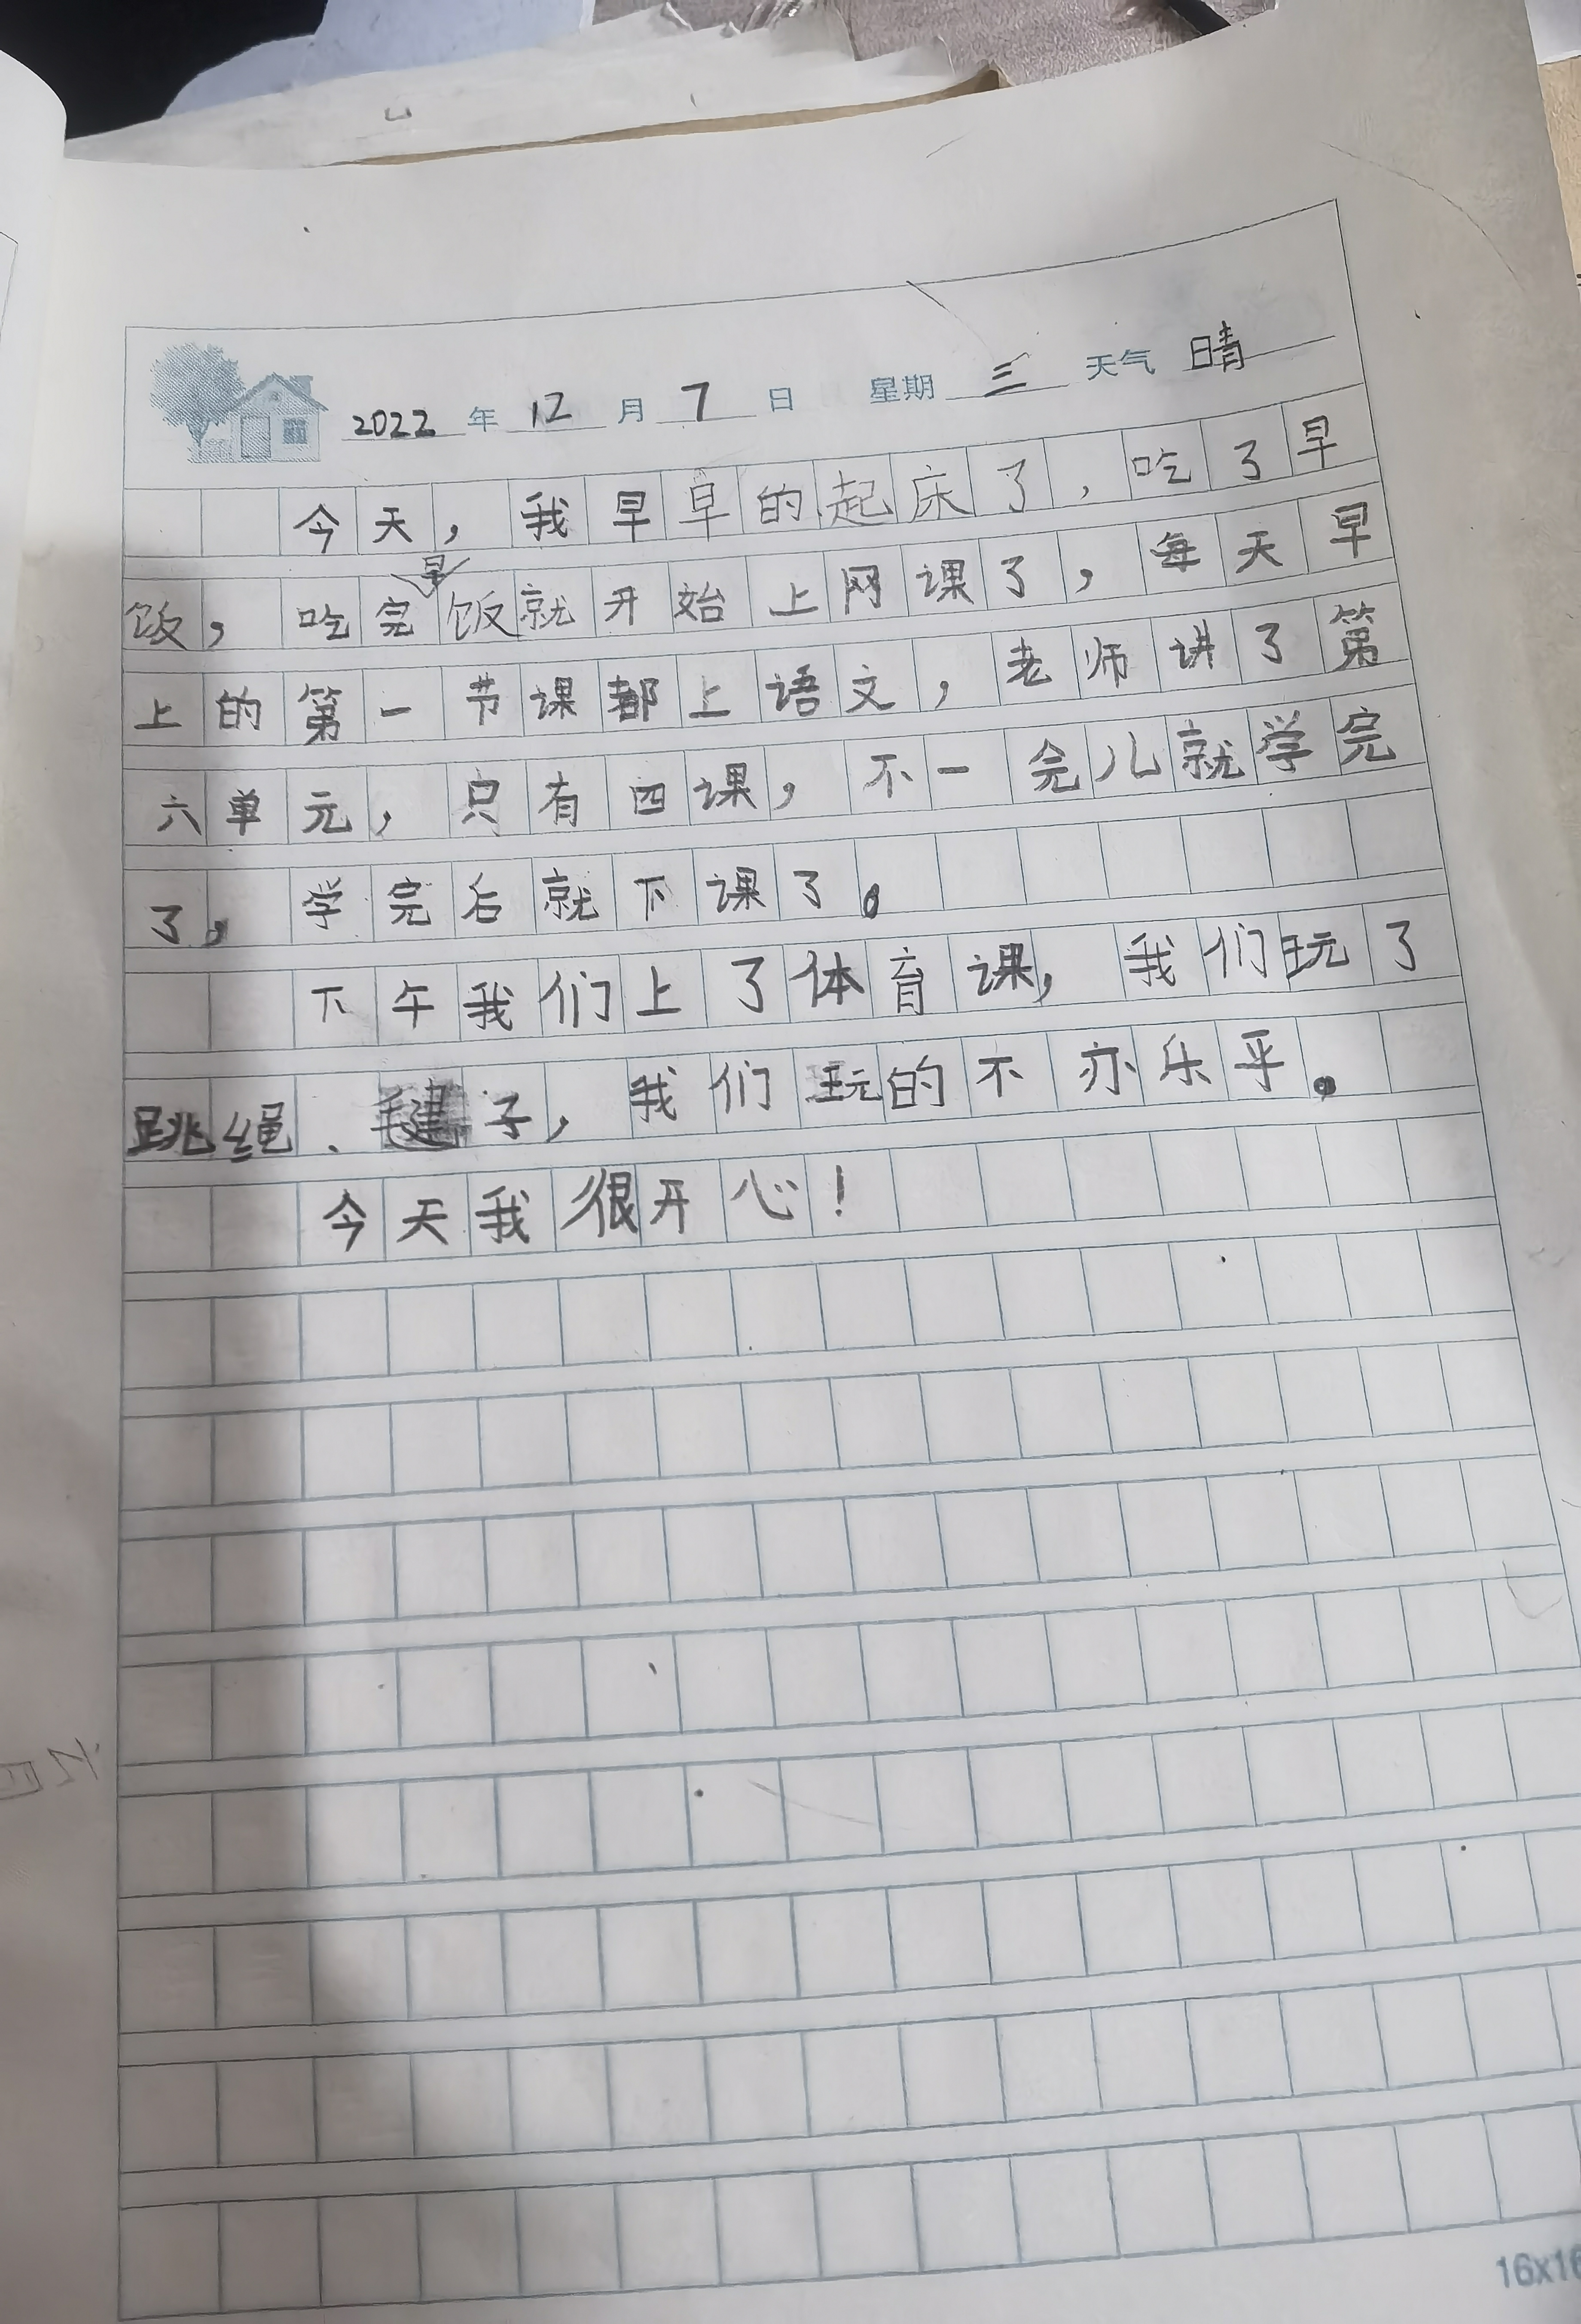 2022年12月7日 星期三 天气晴
今天，我早早的起床了，吃了早
饭，吃完早饭就开始上网课了，每天早
上的第一节课都上语文，老师讲了第
六单元，只有四课，不一会儿就学完
了。学完后就下课了。
下午我们上了体育课，我们玩了
跳绳、毽子，我们玩的不亦乐乎。
今天我很开心！